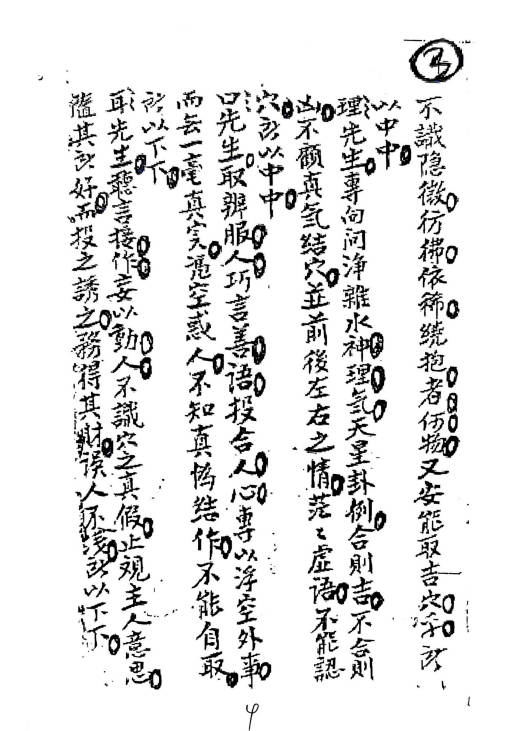 不識隐微彷彿依稀繞抱者何物又安能取吉穴乎所
以中中
理先生專向问淨雜水神理氣天星卦例合則吉不合則
凶不顧真氣結穴並前後左右之情茫々虛语不能認
穴所以中中
口先生取辦服人巧言善语投合人心專以浮空外事
而去一毫真实憑空惑人不知真偽結作不能自取
所以下下
耳先生聽言接作妄以動人不識穴之真假止观主人意思
隨其所好而投之誘之務得其財误人不浅所以下下
4